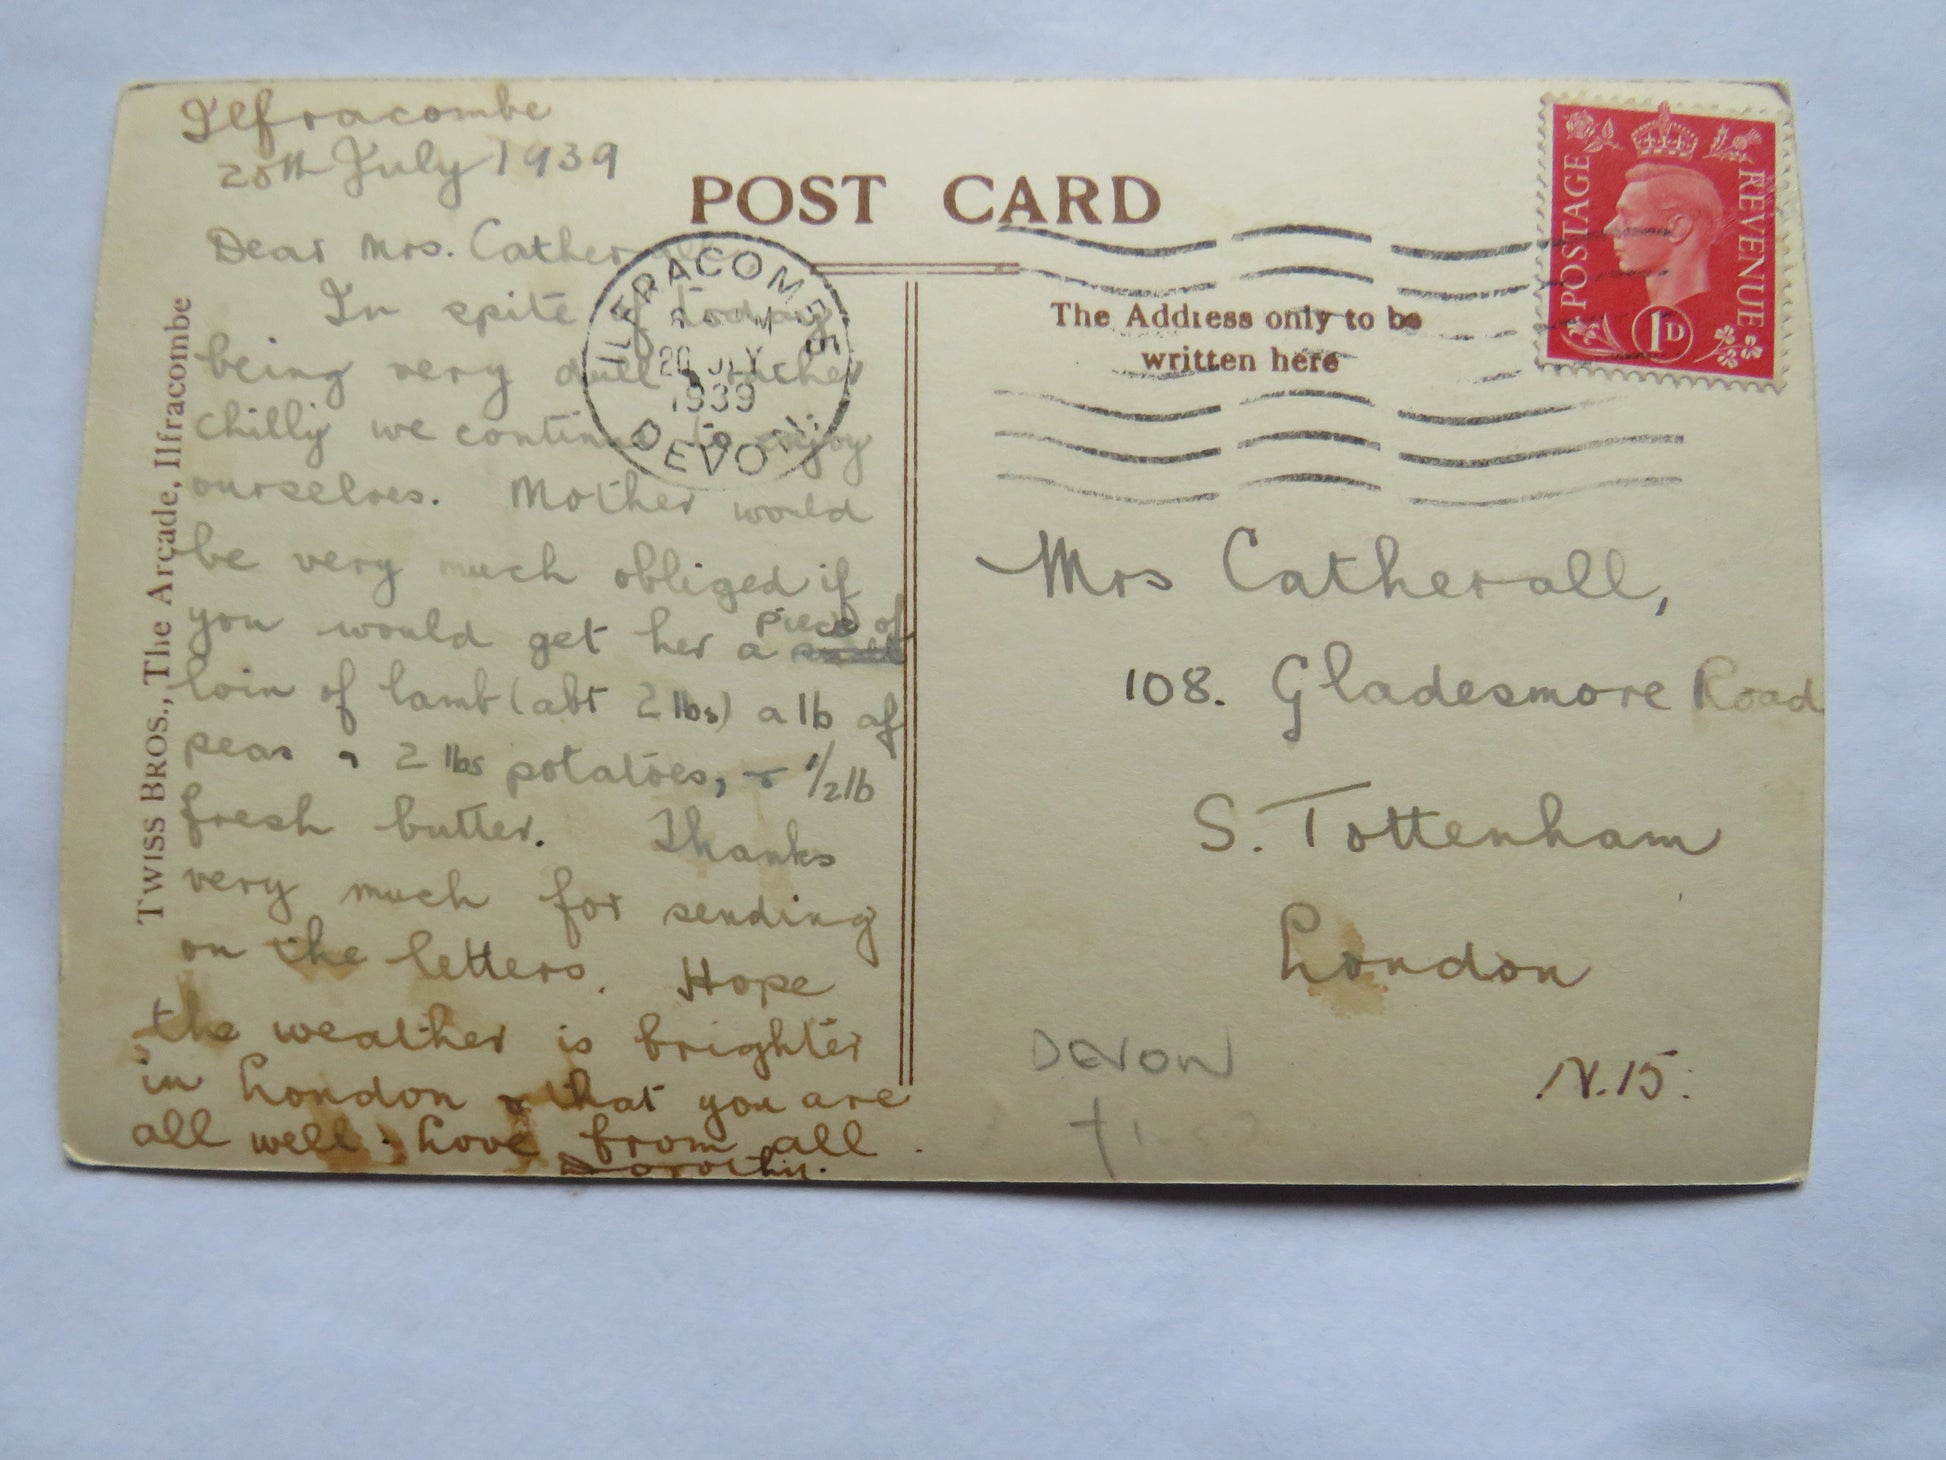 Ilfracombe
20th July 1939
Dear Mrs. Catherall,
In spite of today
being very dull & rather
chilly we continue to enjoy
ourselves. Mother would
be very much obliged if
you would get her a piece of
loin of lamb (abt 2 lbs) a lb of
peas, 2 lbs potatoes, & 1/2 lb
fresh butter. Thanks
very much for sending
on the letters. Hope
the weather is brighter
in London & that you are
all well. Love from all
Dorothy.
TWISS BROS., The Arcade, Ilfracombe
POST CARD
The Address only to be
written here
ILFRACOMBE
20 JLY
1939
DEVON
POSTAGE
REVENUE
1D
Mrs Catherall,
108. Gladesmore Road
S. Tottenham
London
N.15.
DEVON